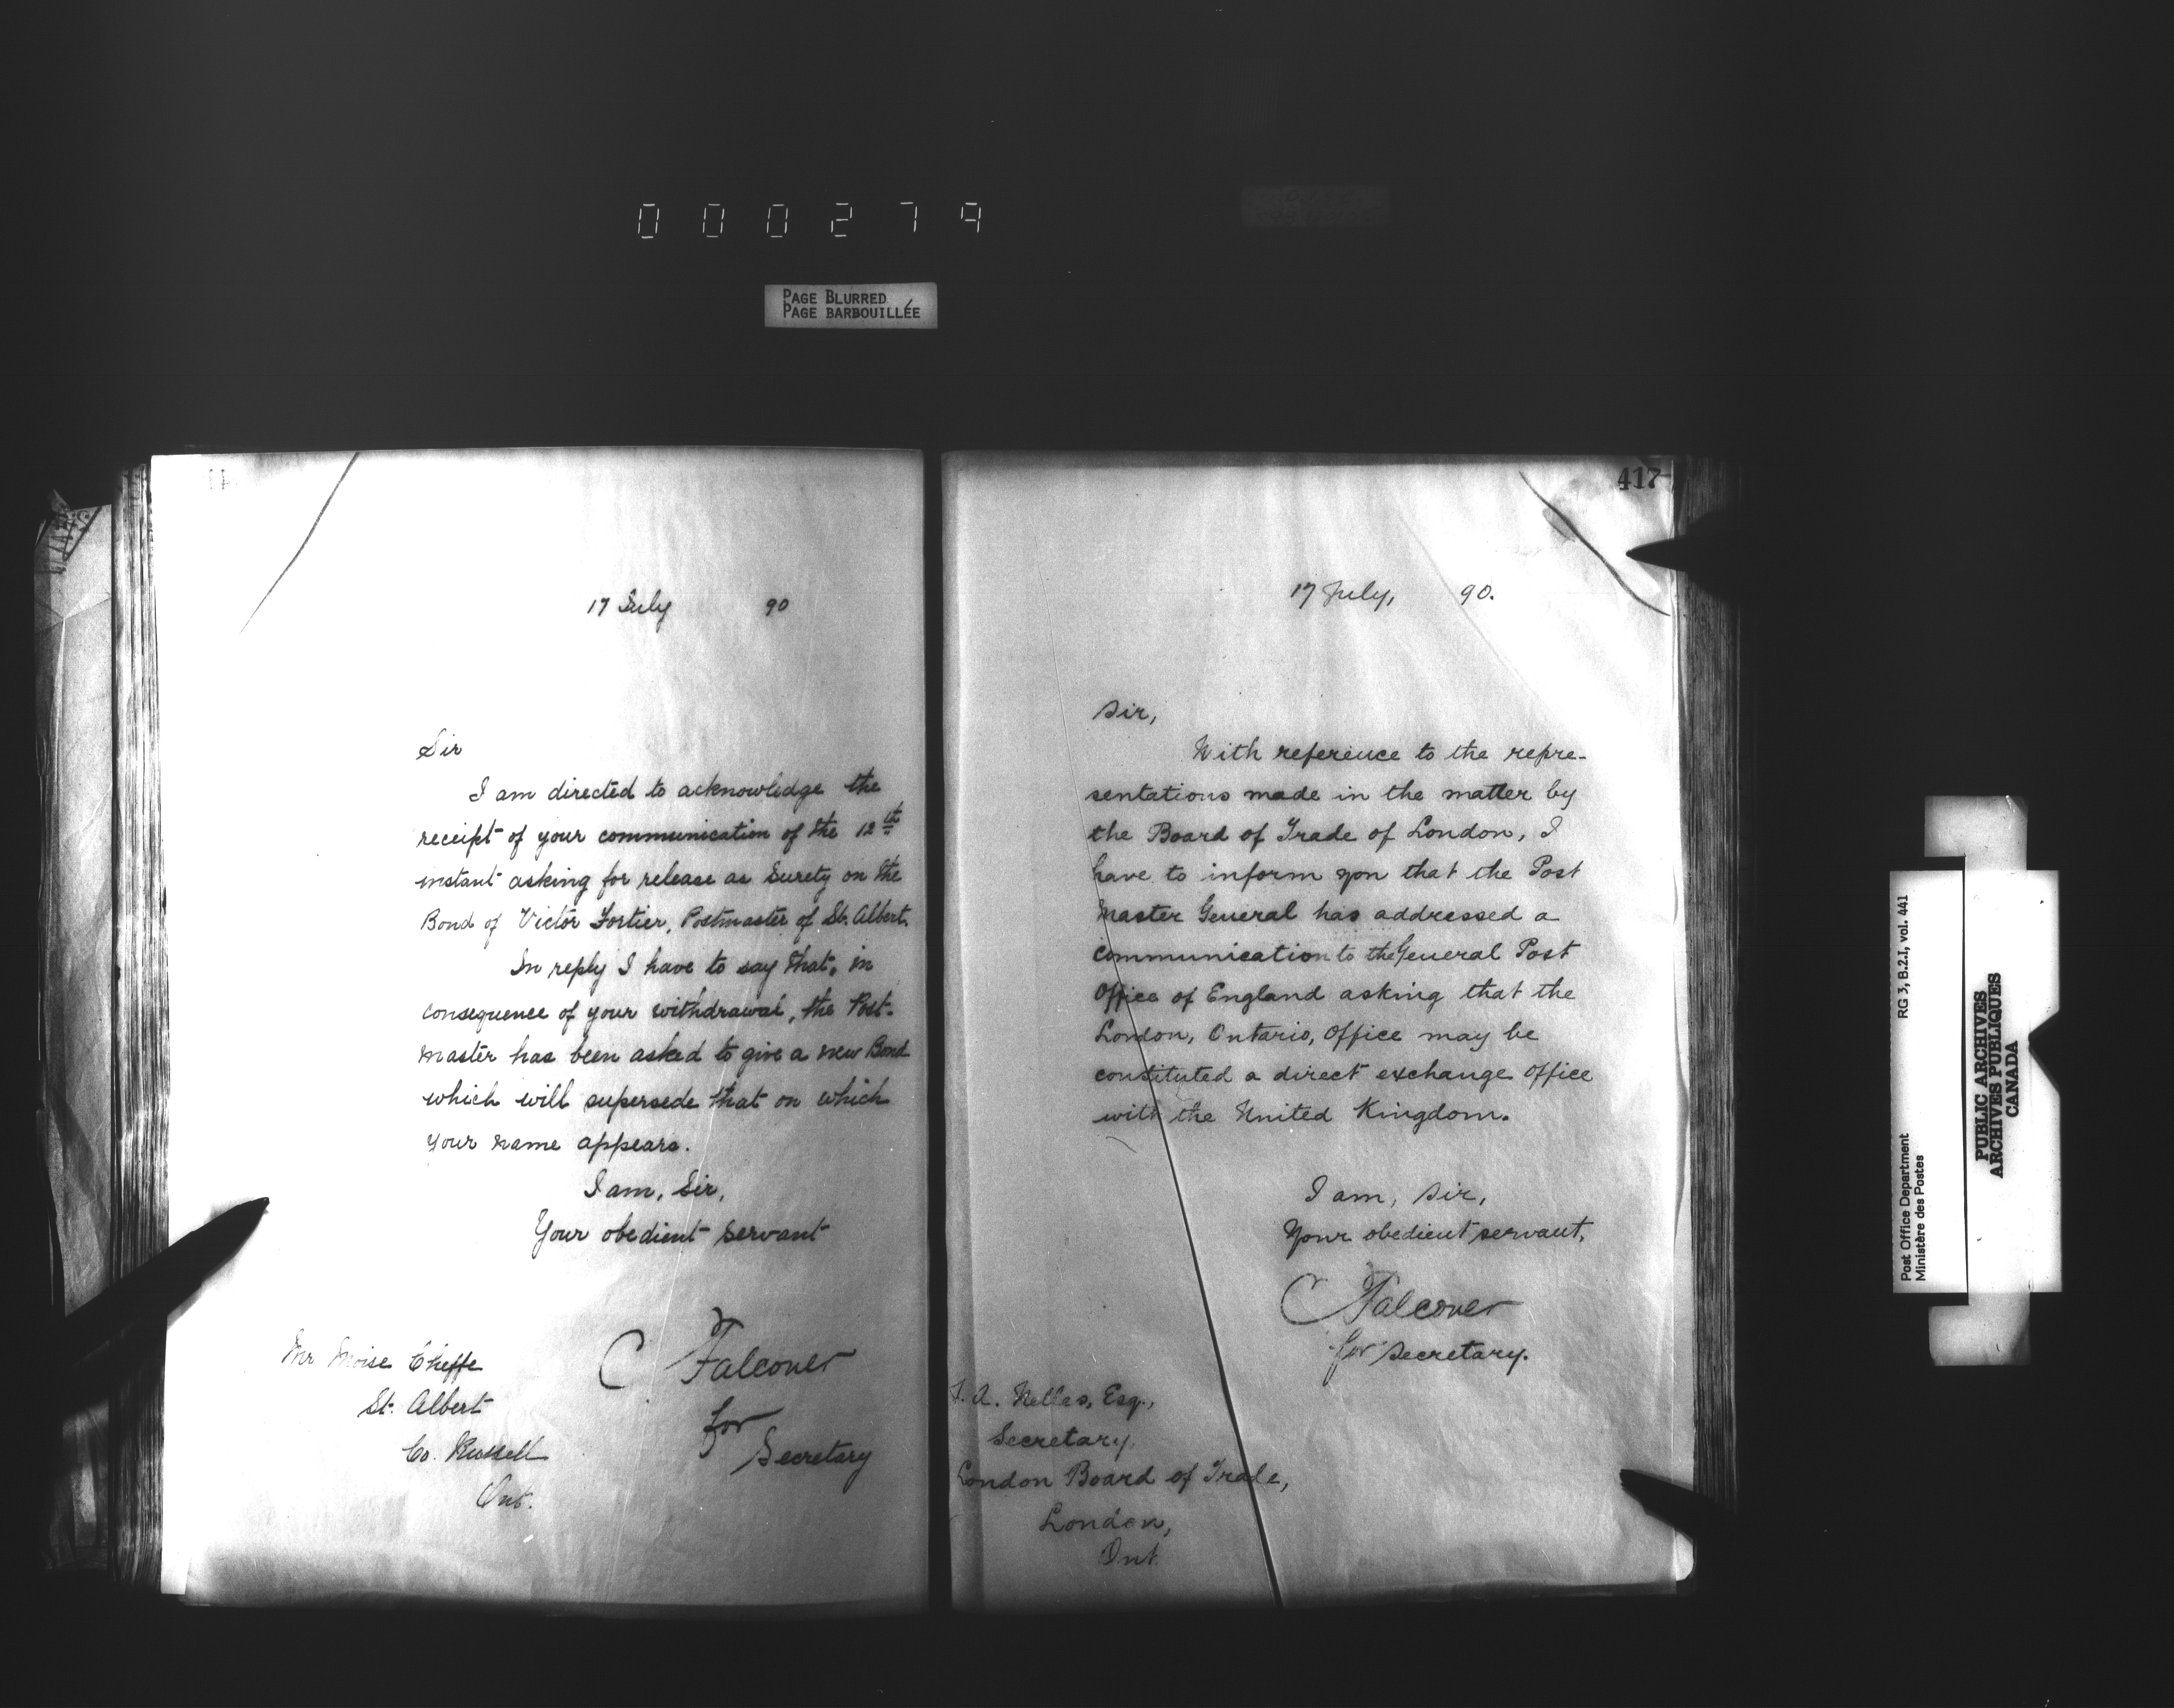 000279
PAGE BLURRED
PAGE BARBOUILLÉE
17 July 90
Sir
I am directed to acknowledge the
receipt of your communication of the 12th
instant asking for release as Surety on the
Bond of Victor Fortier, Postmaster of St. Albert.
In reply I have to say that, in
consequence of your withdrawal, the Post-
master has been asked to give a new Bond
which will supersede that on which
your name appears.
I am, Sir,
Your obedient servant
C Falconer
for
Secretary
Mr Moise Cheffe
St. Albert
Co. Russell
Ont.
417
17 July, 90.
Sir,
With reference to the repre-
sentations made in the matter by
the Board of Trade of London, I
have to inform you that the Post
Master General has addressed a
communication to the General Post
Office of England asking that the
London, Ontario, Office may be
constituted a direct exchange Office
with the United Kingdom.
I am, Sir,
Your obedient servant,
C Falconer
for Secretary.
A. Nelles, Esq.,
Secretary,
London Board of Trade,
London,
Ont
Post Office Department
Ministère des Postes
RG 3, B.2.I, vol. 441
PUBLIC ARCHIVES
ARCHIVES PUBLIQUES
CANADA